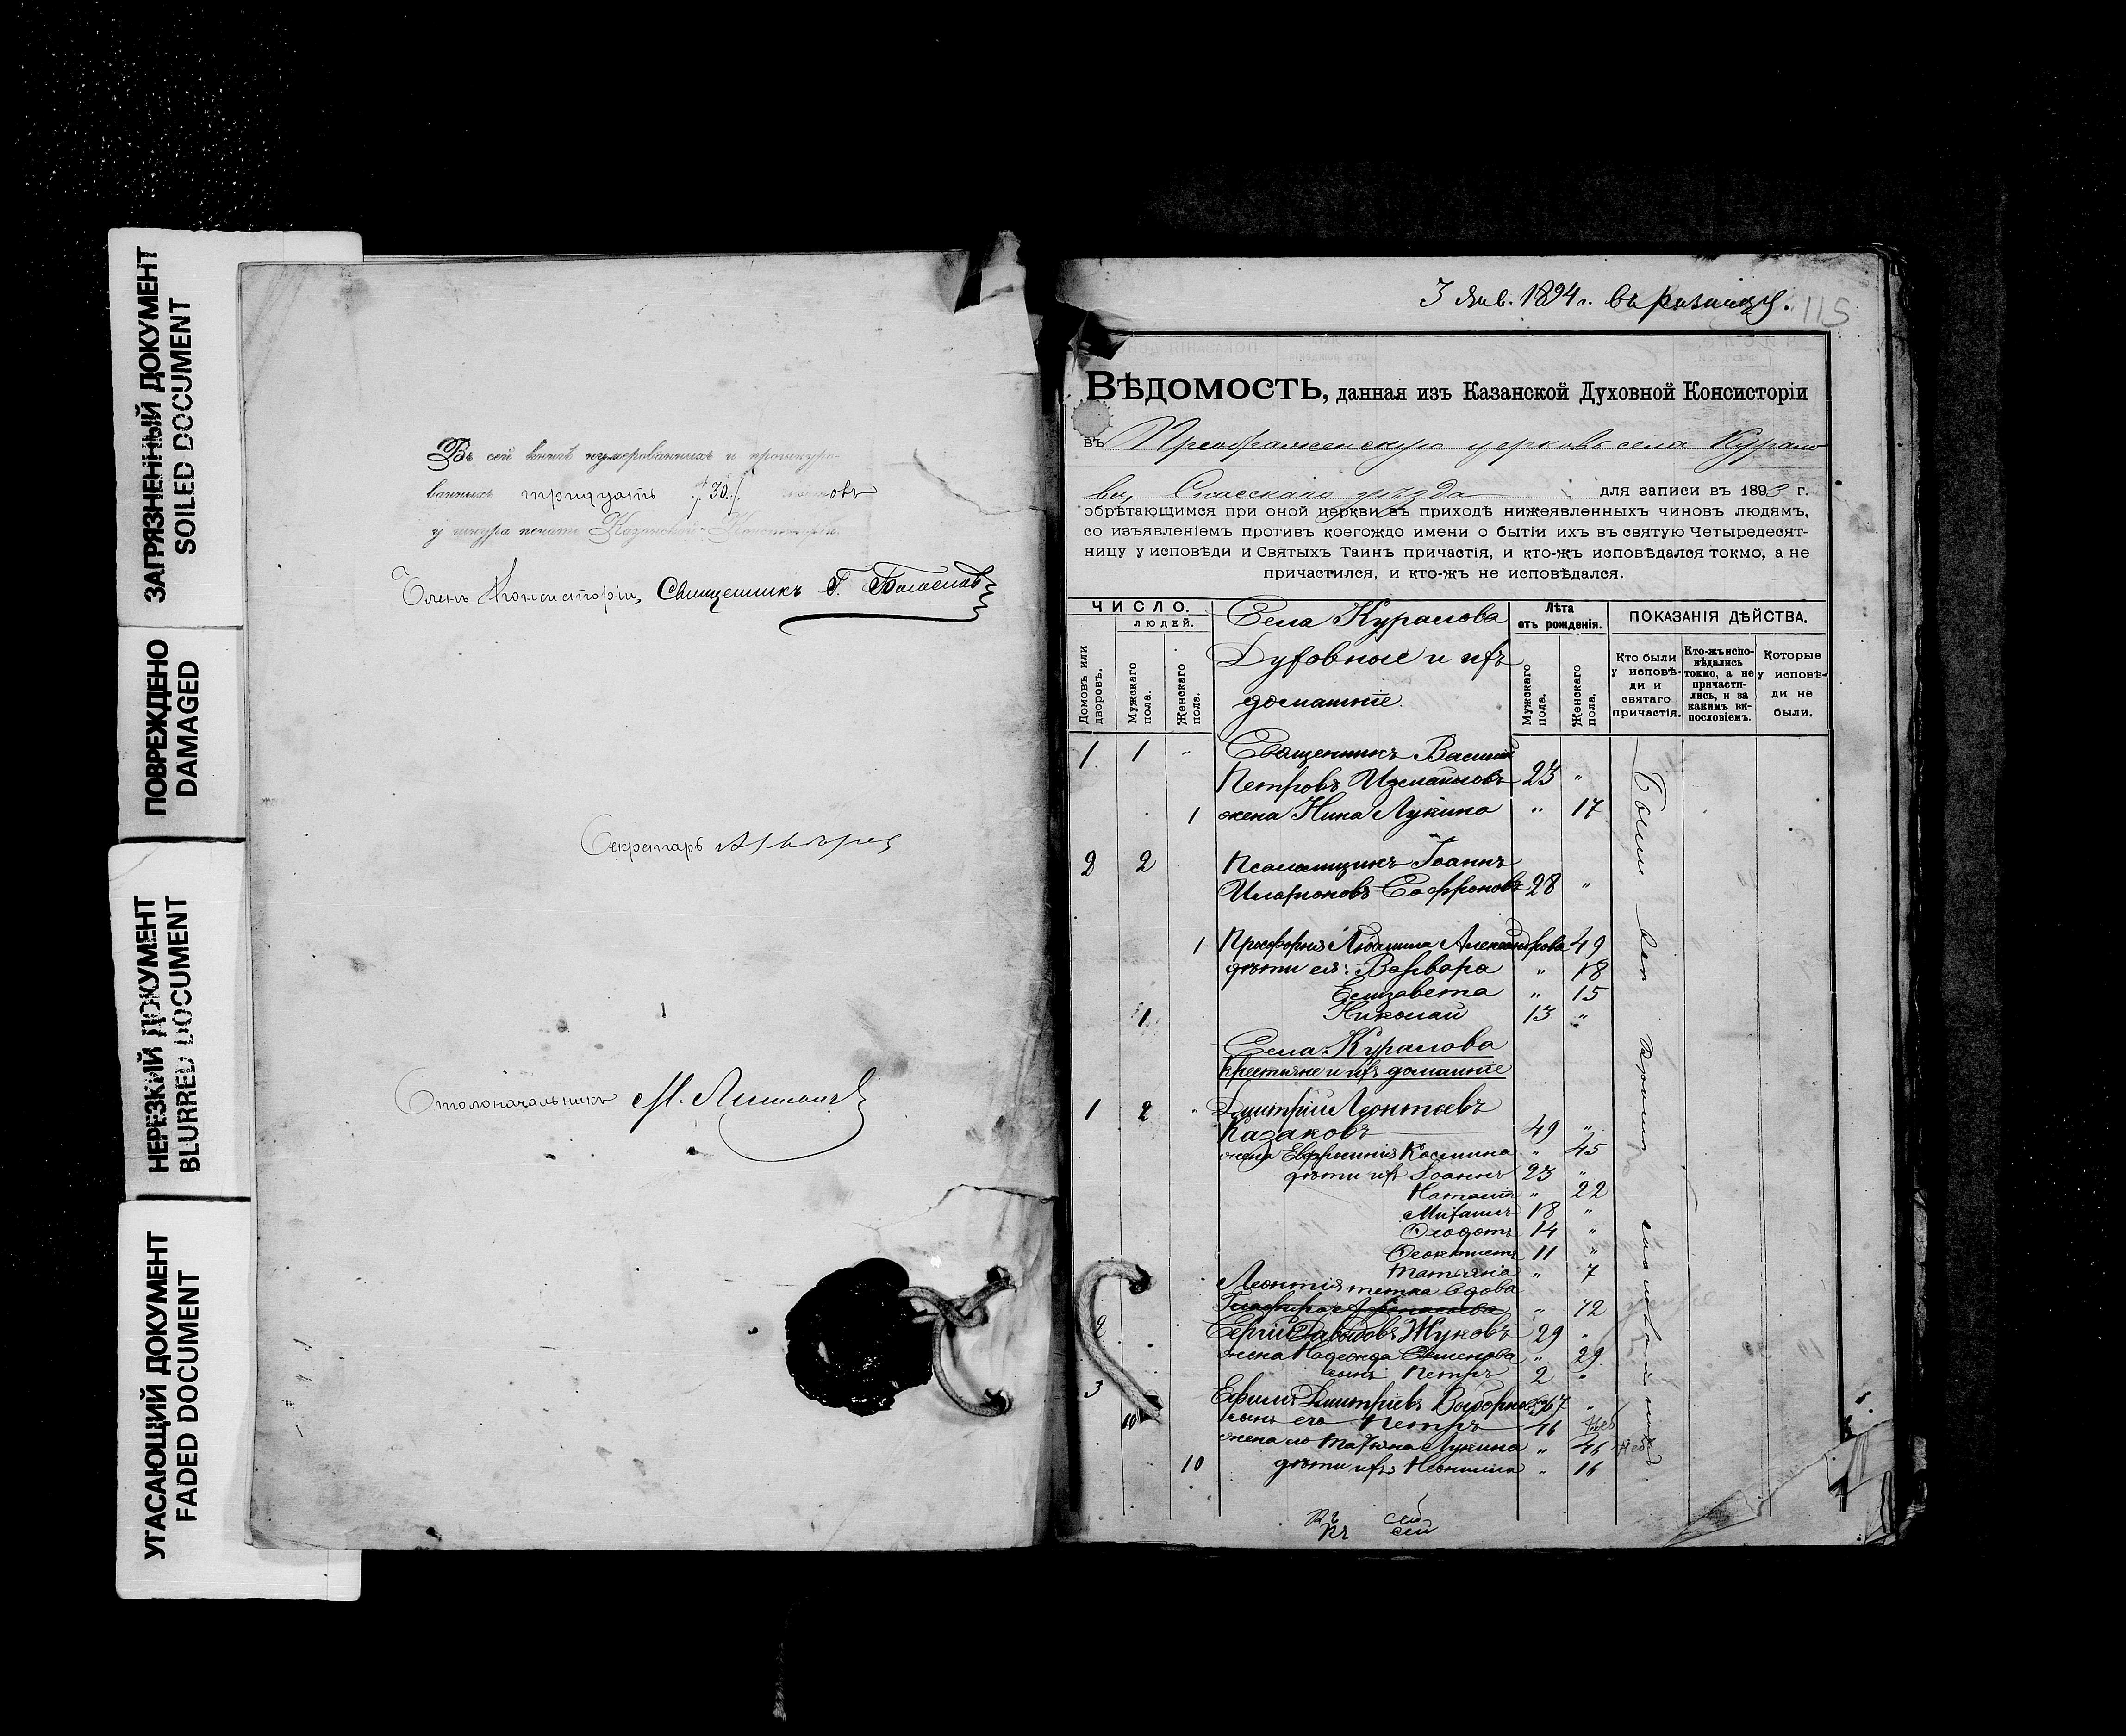 ЗАГРЯЗНЕННЫЙ ДОКУМЕНТ
SOILED DOCUMENT
ПОВРЕЖДЕНО
DAMAGED
НЕРЕЗКИЙ ДОКУМЕНТ
BLURRED DOCUMENT
УГАСАЮЩИЙ ДОКУМЕНТ
FADED DOCUMENT
Въ сей книгѣ нумерованныхъ и прошнуро-
ванныхъ тридцать /30./ листовъ
у шнура печать Казанской Консисторіи.
Членъ Консисторіи, Священникъ Г.
Секретарь
Столоначальникъ М.
3 Янв. 1894 г. въ ризницу. 115
ВѢДОМОСТЬ, данная изъ Казанской Духовной Консисторіи
въ Преображенскую церковь села Курало
ва, Спасскаго уѣзда для записи въ 1893 г.
обрѣтающимся при оной церкви въ приходѣ нижеявленныхъ чиновъ людямъ,
со изъявленіемъ противъ коегождо имени о бытіи ихъ въ святую Четыредесят-
ницу у исповѣди и Святыхъ Таинъ причастія, и кто-жъ исповѣдался токмо, а не
причастился, и кто-жъ не исповѣдался.
ЧИСЛО.
ЛЮДЕЙ.
Домовъ или дворовъ.
Мужскаго пола.
Женскаго пола.
Села Куралова
Духовные и ихъ
домашніе.
Лѣта отъ рожденія.
Мужскаго пола.
Женскаго пола.
ПОКАЗАНІЯ ДѢЙСТВА.
Кто были у исповѣди и святаго причастія.
Кто-жъ исповѣдались токмо, а не причастились, и за какимъ винословіемъ.
Которые у исповѣди не были.
1 1 " Священникъ Василій
Петровъ Измаиловъ 23 "
1 жена Нина Лукина " 17
2 2 Псаломщикъ Іоаннъ
Иларіоновъ Софроновъ 28 "
1 Просфорня Людмила Александрова 49
дѣти ея: Варвара " 18
Елизавета " 15
1 Николай 13 "
Села Куралова
крестьяне и ихъ домашніе
1 2 " Димитрій Леонтьевъ
Казаковъ 49 "
жена Евфросинія Космина " 45
дѣти ихъ Іоаннъ 23 "
Наталія " 22
Михаилъ 18 "
Ѳеодотъ 14 "
Ѳеоктистъ 11 "
Татьяна " 7
Леонтія тетка вдова
" 72
2 Сергій Давыдовъ Жуковъ 29 "
жена Надежда Семенова " 29
сынъ Петръ 2 "
3 Ефимъ Димитріевъ 67 "
10 сынъ его Петръ 46
жена его Татьяна Лукина " 46
10 дѣти ихъ Неонилла " 16
Были вси